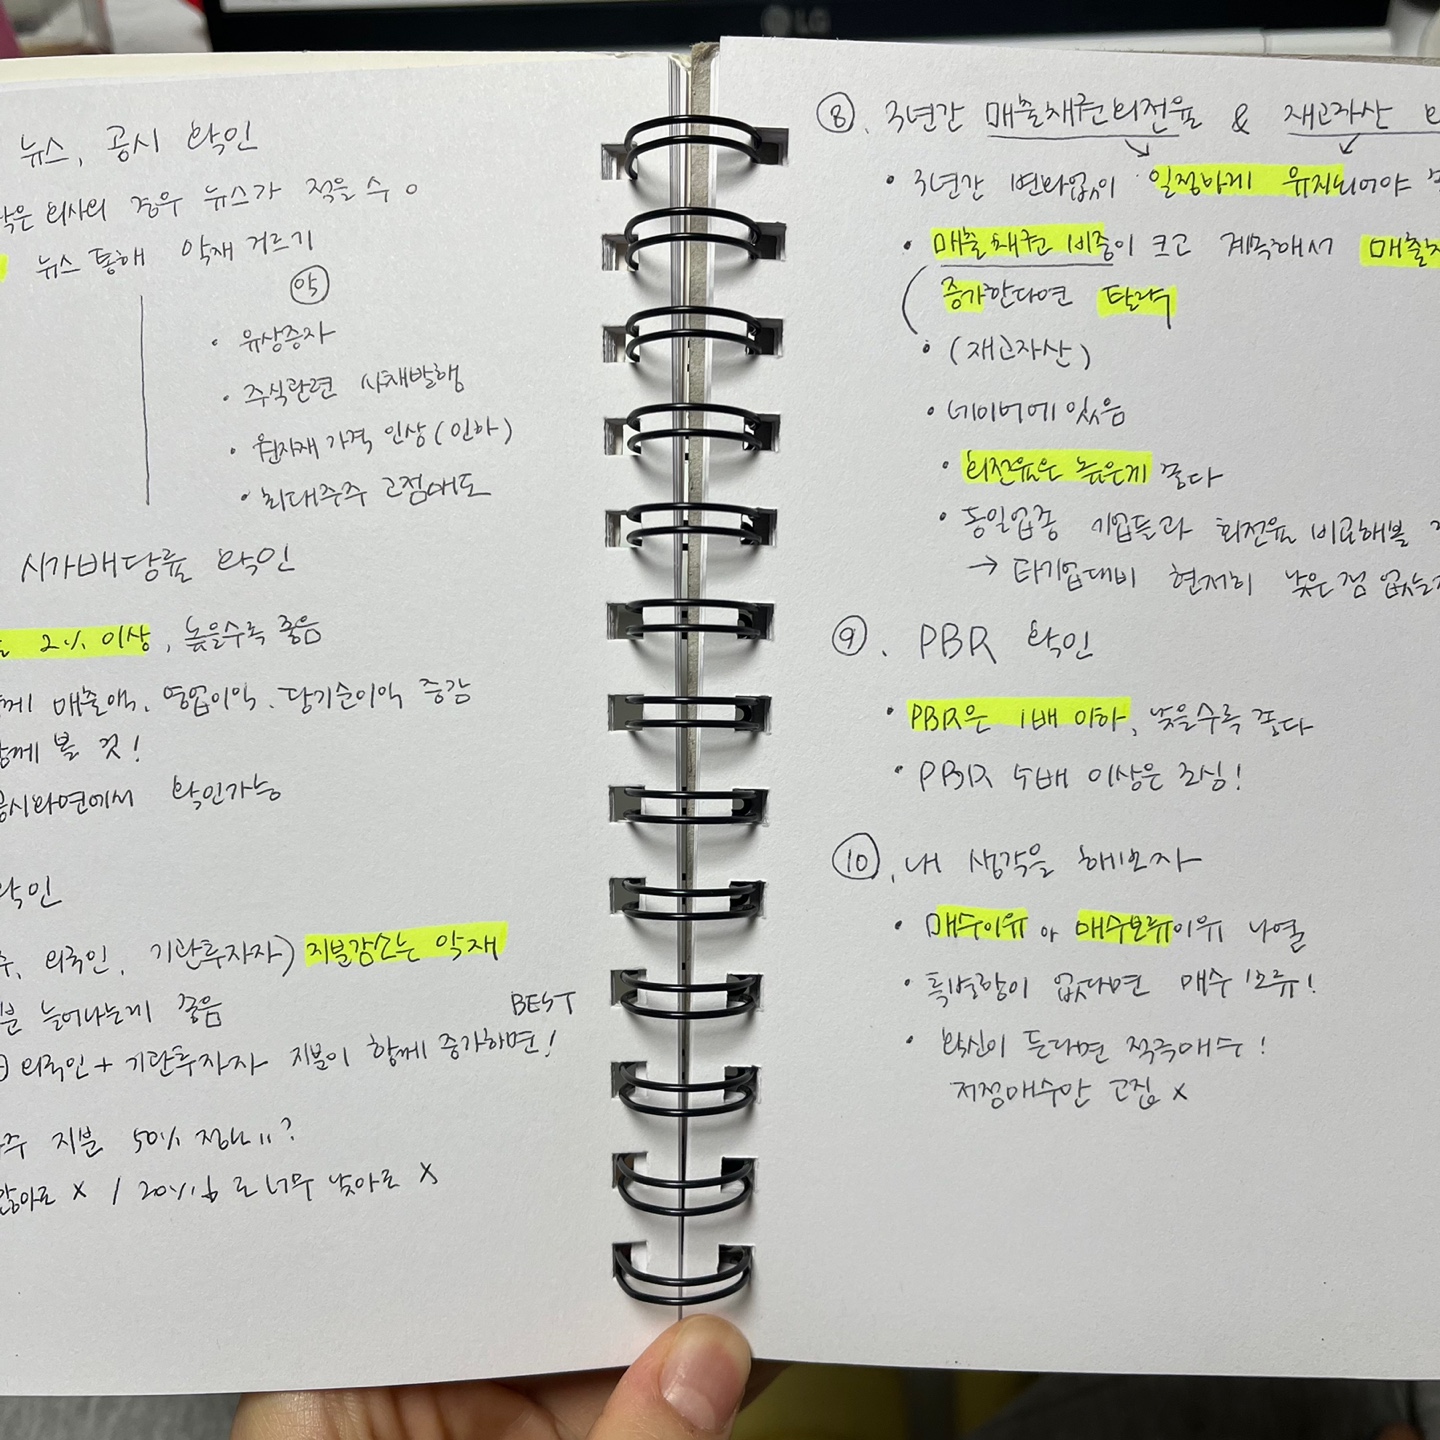 LG
뉴스, 공시 확인
작은 회사의 경우 뉴스가 적을 수 ㅇ
뉴스 통해 악재 거르기
악
· 유상증자
· 주식관련 사채발행
· 원자재 가격 인상(인하)
· 최대주주 고점매도
시가배당률 확인
2% 이상, 높을수록 좋음
함께 매출액, 영업이익, 당기순이익 증감
함께 볼 것!
공시화면에서 확인가능
확인
주, 외국인, 기관투자자) 지분감소는 악재
분 늘어나는게 좋음
BEST
외국인 + 기관투자자 지분이 함께 증가하면!
주 지분 50% 정도?
많아도 x / 20%로 너무 낮아도 x
⑧. 3년간 매출채권회전율 & 재고자산
· 3년간 변화없이 일정하게 유지되어야
· 매출채권 비중이 크고 계속해서 매출채
증가한다면 탈락
· (재고자산)
· 네이버에 있음
· 회전율은 높은게 좋다
· 동일업종 기업들과 회전율 비교해볼
→ 타기업대비 현저히 낮은 점 없는지
⑨. PBR 확인
· PBR은 1배 이하, 낮을수록 좋다
· PBR 수배 이상은 조심!
⑩. 내 생각을 해보자
· 매수이유 or 매수보류이유 나열
· 특별함이 없다면 매수 보류!
· 확신이 든다면 적극매수!
저점매수만 고집 x